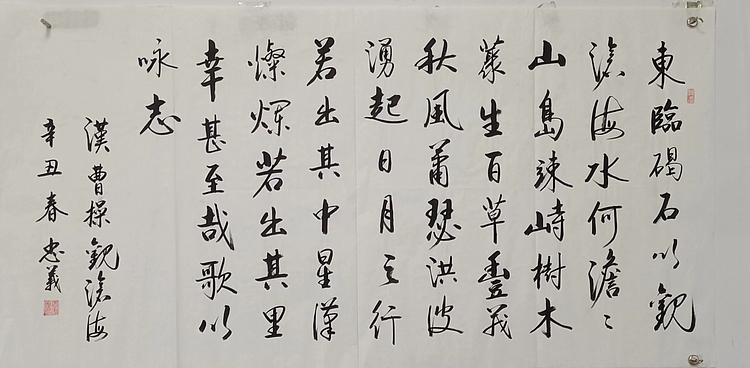 東臨碣石以觀
滄海水何澹〻
山島竦峙樹木
叢生百草豊茂
秋風蕭瑟洪波
湧起日月之行
若出其中星漢
燦爛若出其里
幸甚至哉歌以
咏志
漢曹操觀滄海
辛丑春忠義